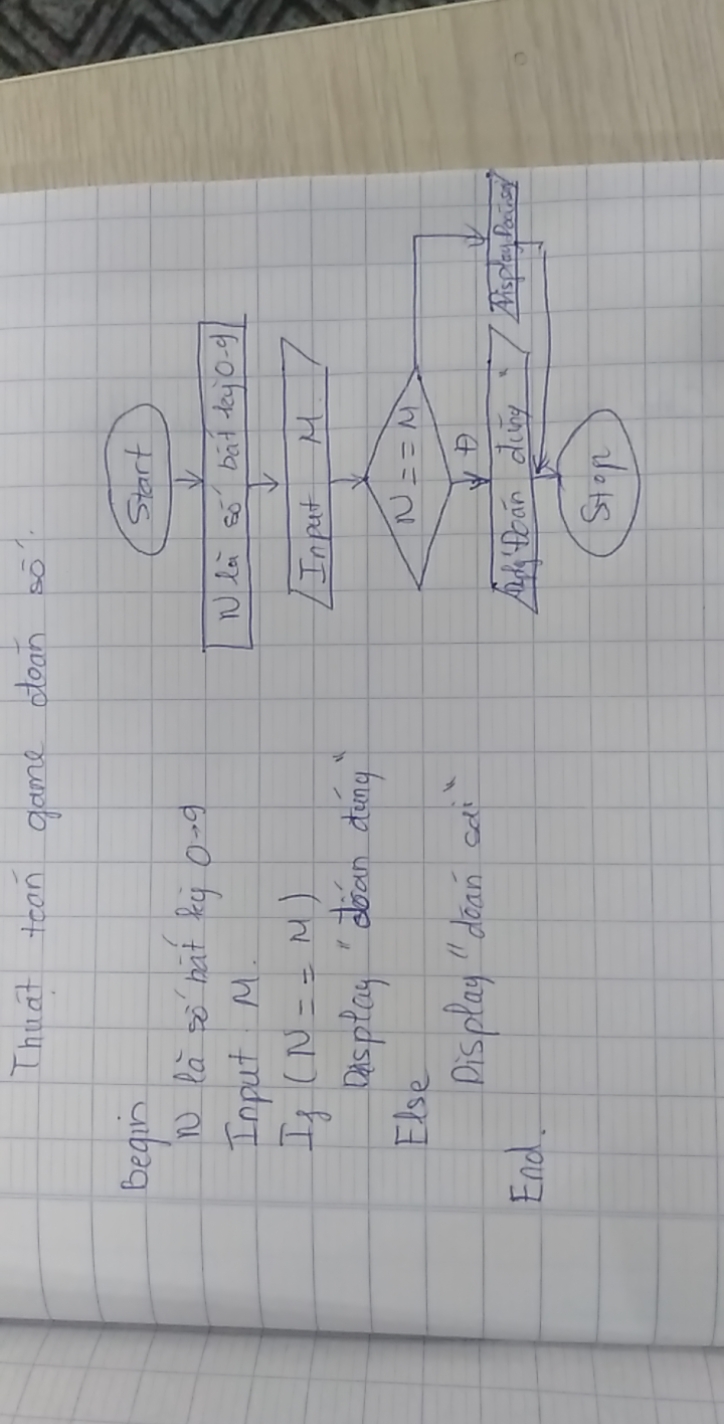 Thuật toán game đoán số.
Begin
N là số bất kỳ 0→9
Input M.
If (N == M)
Display "đoán đúng"
Else
Display "đoán sai"
End.
Start
N là số bất kỳ 0-9
Input M.
N == M
Đ
"Đoán đúng"
Display Đoán sai
Stop